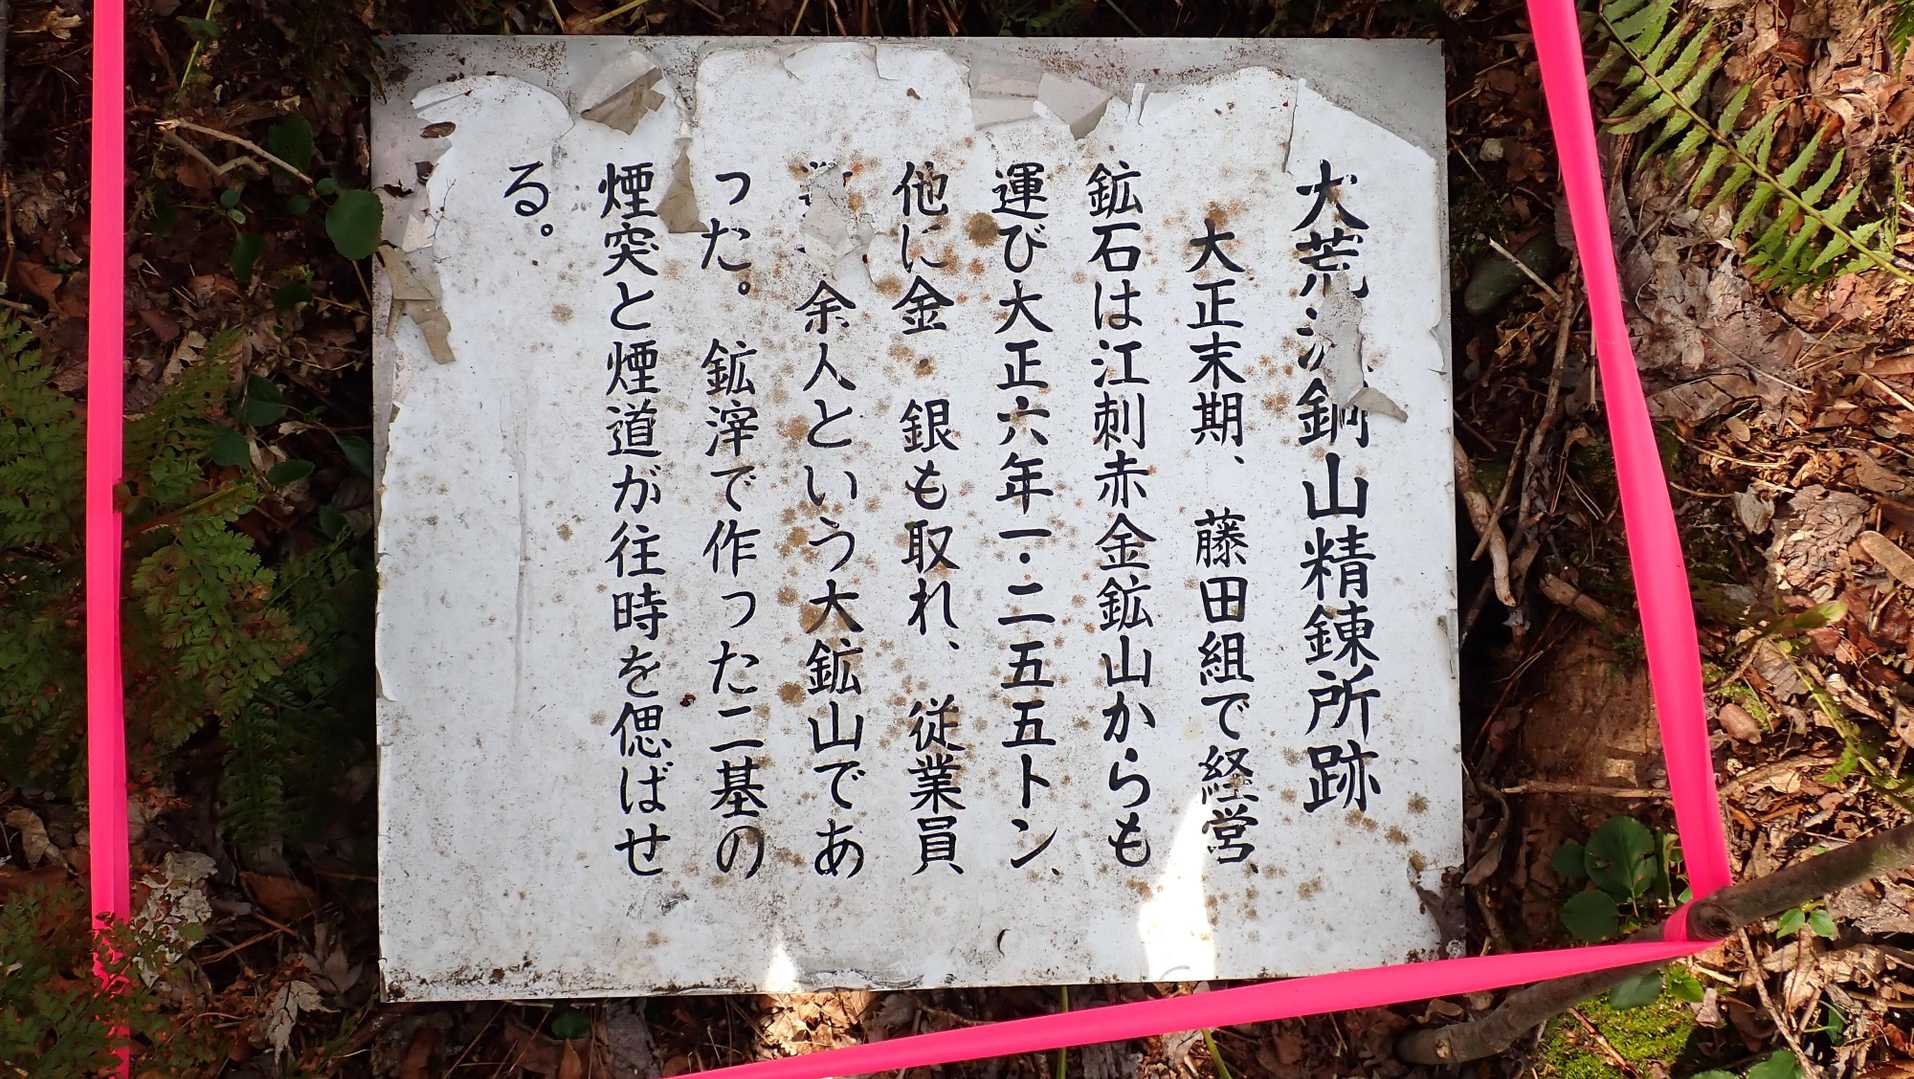 大荒銅山精錬所跡
大正末期、藤田組で経営、
鉱石は江刺赤金鉱山からも
運び大正六年一・二五五トン、
他に金 銀も取れ、従業員
余人という大鉱山であ
った。鉱滓で作った二基の
煙突と煙道が往時を偲ばせ
る。